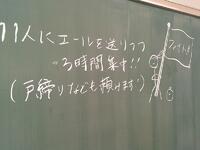 11人にエールを送りつつ
3時間集中!!
(戸締りなども頼みます)
ファイト!!